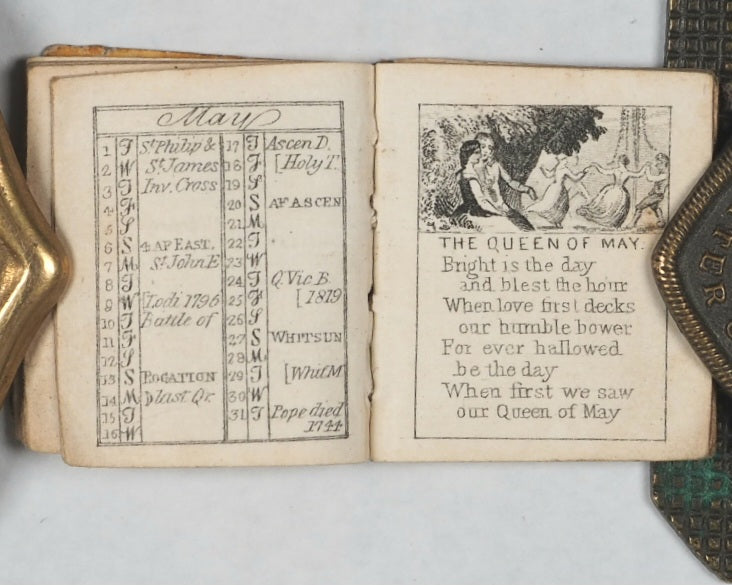 May
1 T St Philip &
2 W St James
3 T Inv. Cross
4 F
5 S
6 S 4 AF EAST.
7 M St John E
8 T
9 W [Lodi 1796
10 T Battle of
11 F
12 S
13 S ROGATION
14 M last Qr.
15 T
16 W
17 T Ascen D.
18 F [Holy T.
19 S
20 S AF ASCEN
21 M
22 T
23 W
24 T Q Vic B.
25 F [1819
26 S
27 S WHITSUN
28 M
29 T [Whit M
30 W
31 T Pope died
1744
THE QUEEN OF MAY.
Bright is the day
and blest the hour
When love first decks
our humble bower
For ever hallowed
be the day
When first we saw
our Queen of May
TER